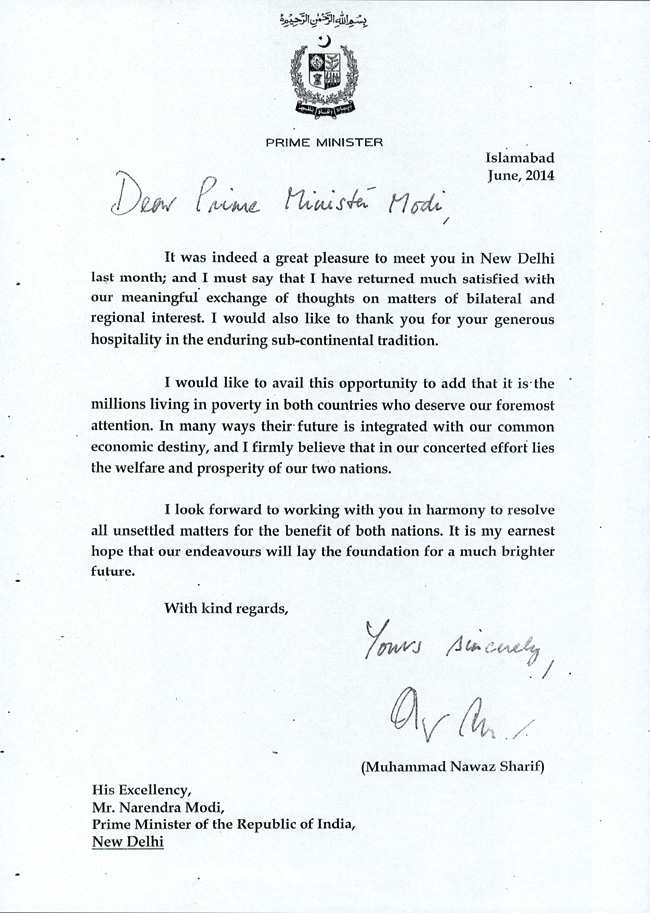 بسم اللہ الرحمٰن الرحیم
PRIME MINISTER
Islamabad
June, 2014
Dear Prime Minister Modi,
It was indeed a great pleasure to meet you in New Delhi
last month; and I must say that I have returned much satisfied with
our meaningful exchange of thoughts on matters of bilateral and
regional interest. I would also like to thank you for your generous
hospitality in the enduring sub-continental tradition.
I would like to avail this opportunity to add that it is the
millions living in poverty in both countries who deserve our foremost
attention. In many ways their future is integrated with our common
economic destiny, and I firmly believe that in our concerted effort lies
the welfare and prosperity of our two nations.
I look forward to working with you in harmony to resolve
all unsettled matters for the benefit of both nations. It is my earnest
hope that our endeavours will lay the foundation for a much brighter
future.
With kind regards,
Yours sincerely,
(Muhammad Nawaz Sharif)
His Excellency,
Mr. Narendra Modi,
Prime Minister of the Republic of India,
New Delhi